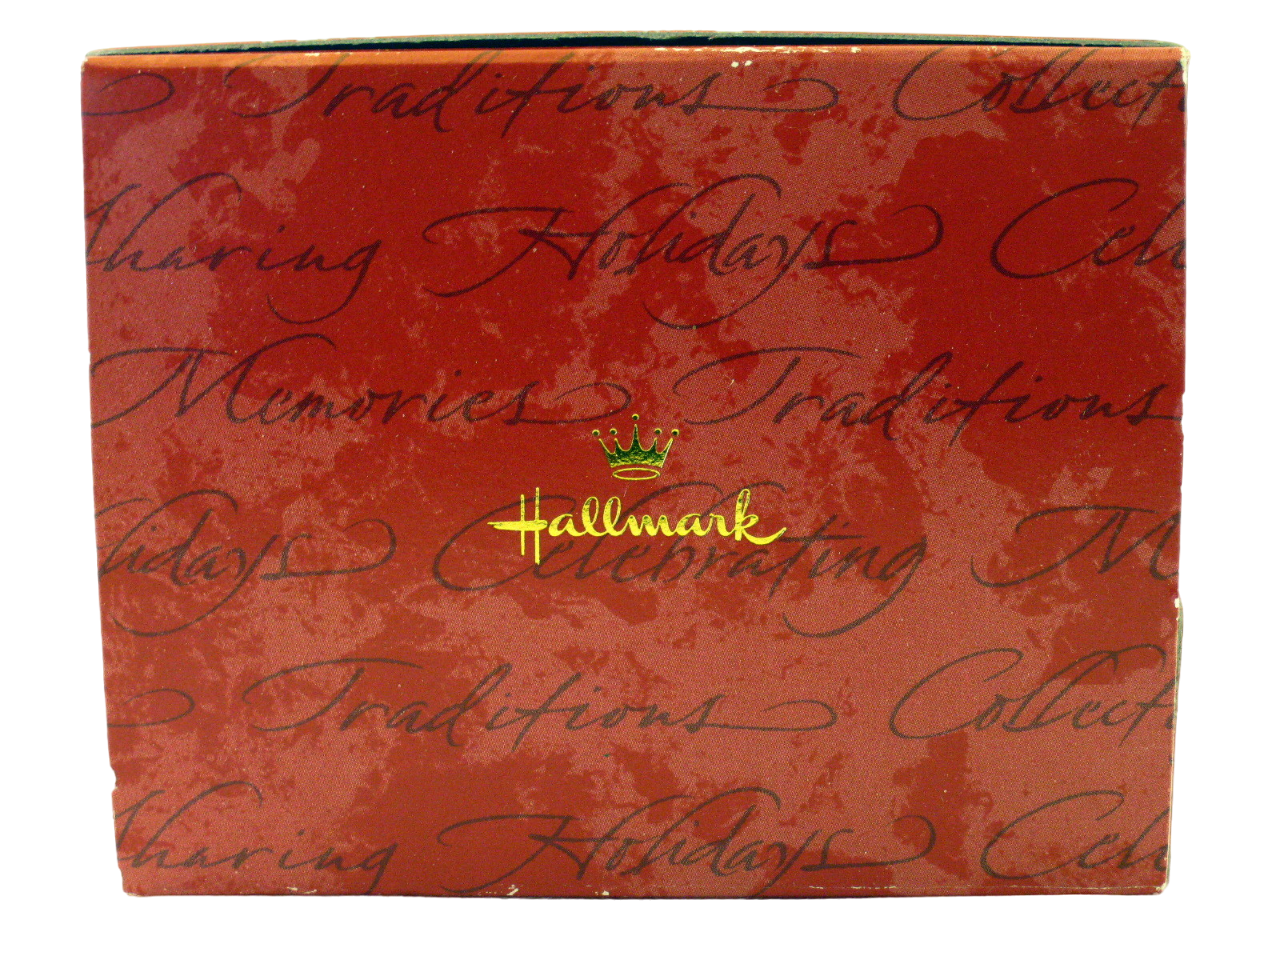 Traditions Collecti
Sharing Holidays Cele
Memories Traditions
Hallmark
lidays Celebrating M
Traditions Collecti
Sharing Holidays Cele